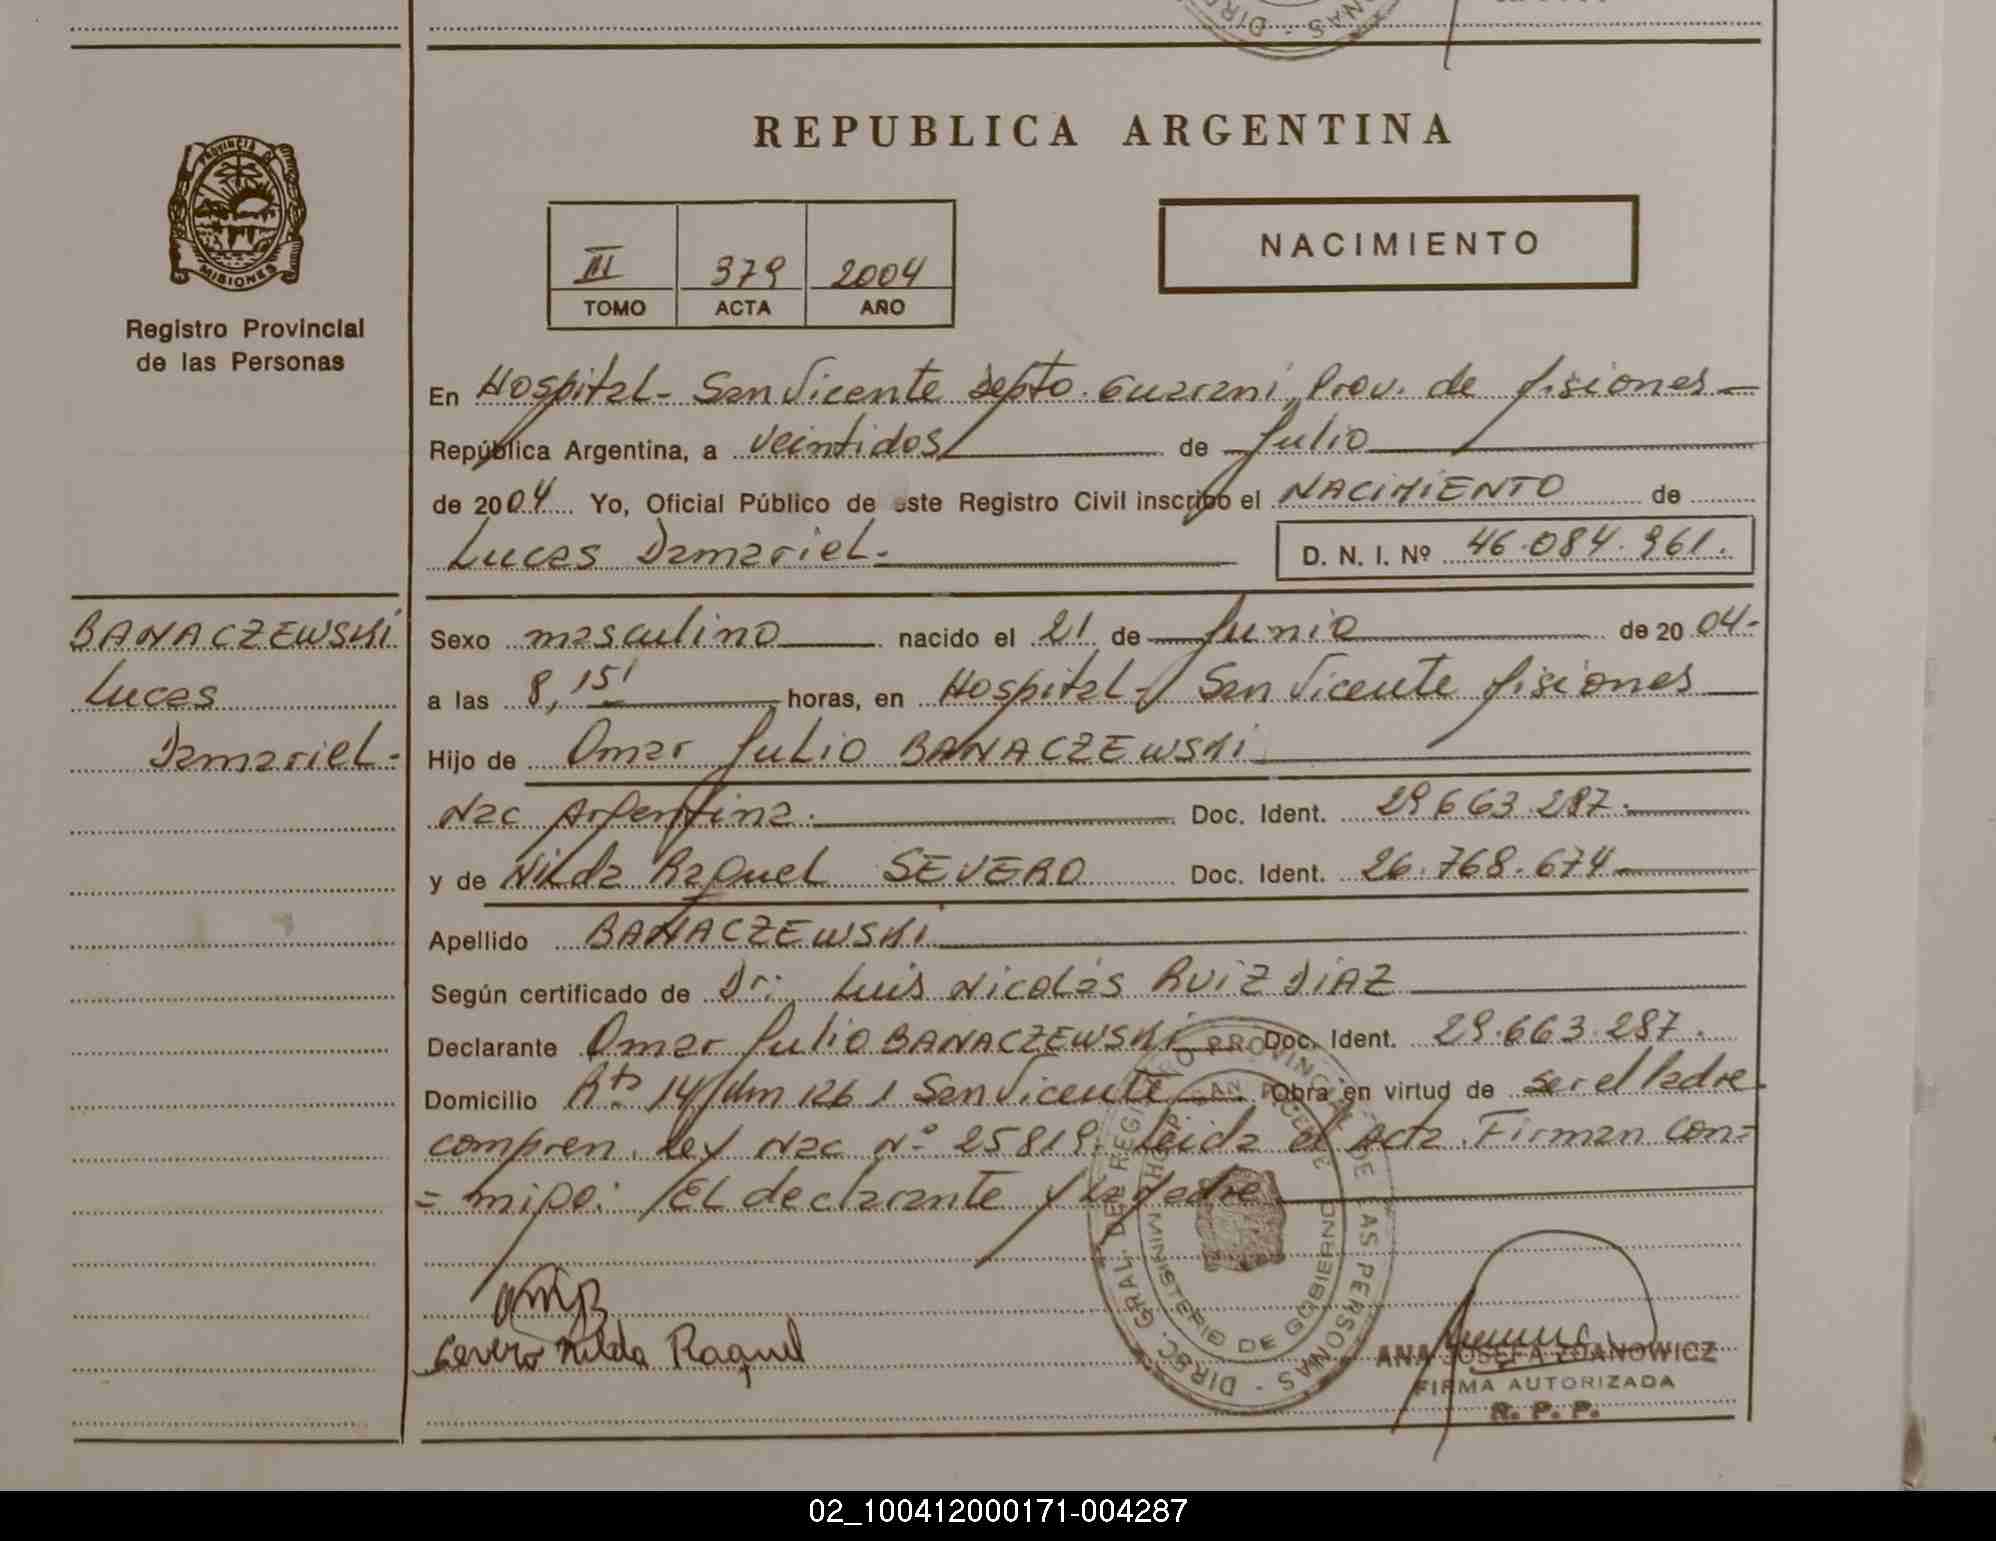 REPUBLICA ARGENTINA
PROVINCIA DE
MISIONES
Registro Provincial
de las Personas
III 379 2004
TOMO ACTA AÑO
NACIMIENTO
En Hospital - San Vicente Depto. Guarani, Prov. de Misiones -
República Argentina, a veintidos de Julio
de 2004 Yo, Oficial Público de este Registro Civil inscribo el NACIMIENTO de
Lucas Damariel.-
D. N. I. Nº 46.084.961.
BANACZEWSKI
Lucas
Damariel-
Sexo masculino nacido el 21 de Junio de 2004-
a las 8,15' horas, en Hospital - San Vicente Misiones
Hijo de Omar Julio BANACZEWSKI
Nac Argentina. Doc. Ident. 29.663.287.
y de Nilda Raquel SEVERO Doc. Ident. 26.768.674
Apellido BANACZEWSKI
Según certificado de Dr. Luis Nicolás RUIZ DIAZ
Declarante Omar Julio BANACZEWSKI Doc. Ident. 29.663.287.
Domicilio Rta 14 Km 1261 San Vicente Obra en virtud de ser el Padre.
compren. Ley Nac Nº 25819. Leida el Acta. Firman con=
= migo: El declarante y la Madre
Severo Nilda Raquel
DIREC. GRAL. DEL REGISTRO PROVINCIAL DE LAS PERSONAS -
MINISTERIO DE GOBIERNO
HOSP. SAN VICENTE
ANA JOSEFA ZDANOWICZ
FIRMA AUTORIZADA
R. P. P.
02_100412000171-004287